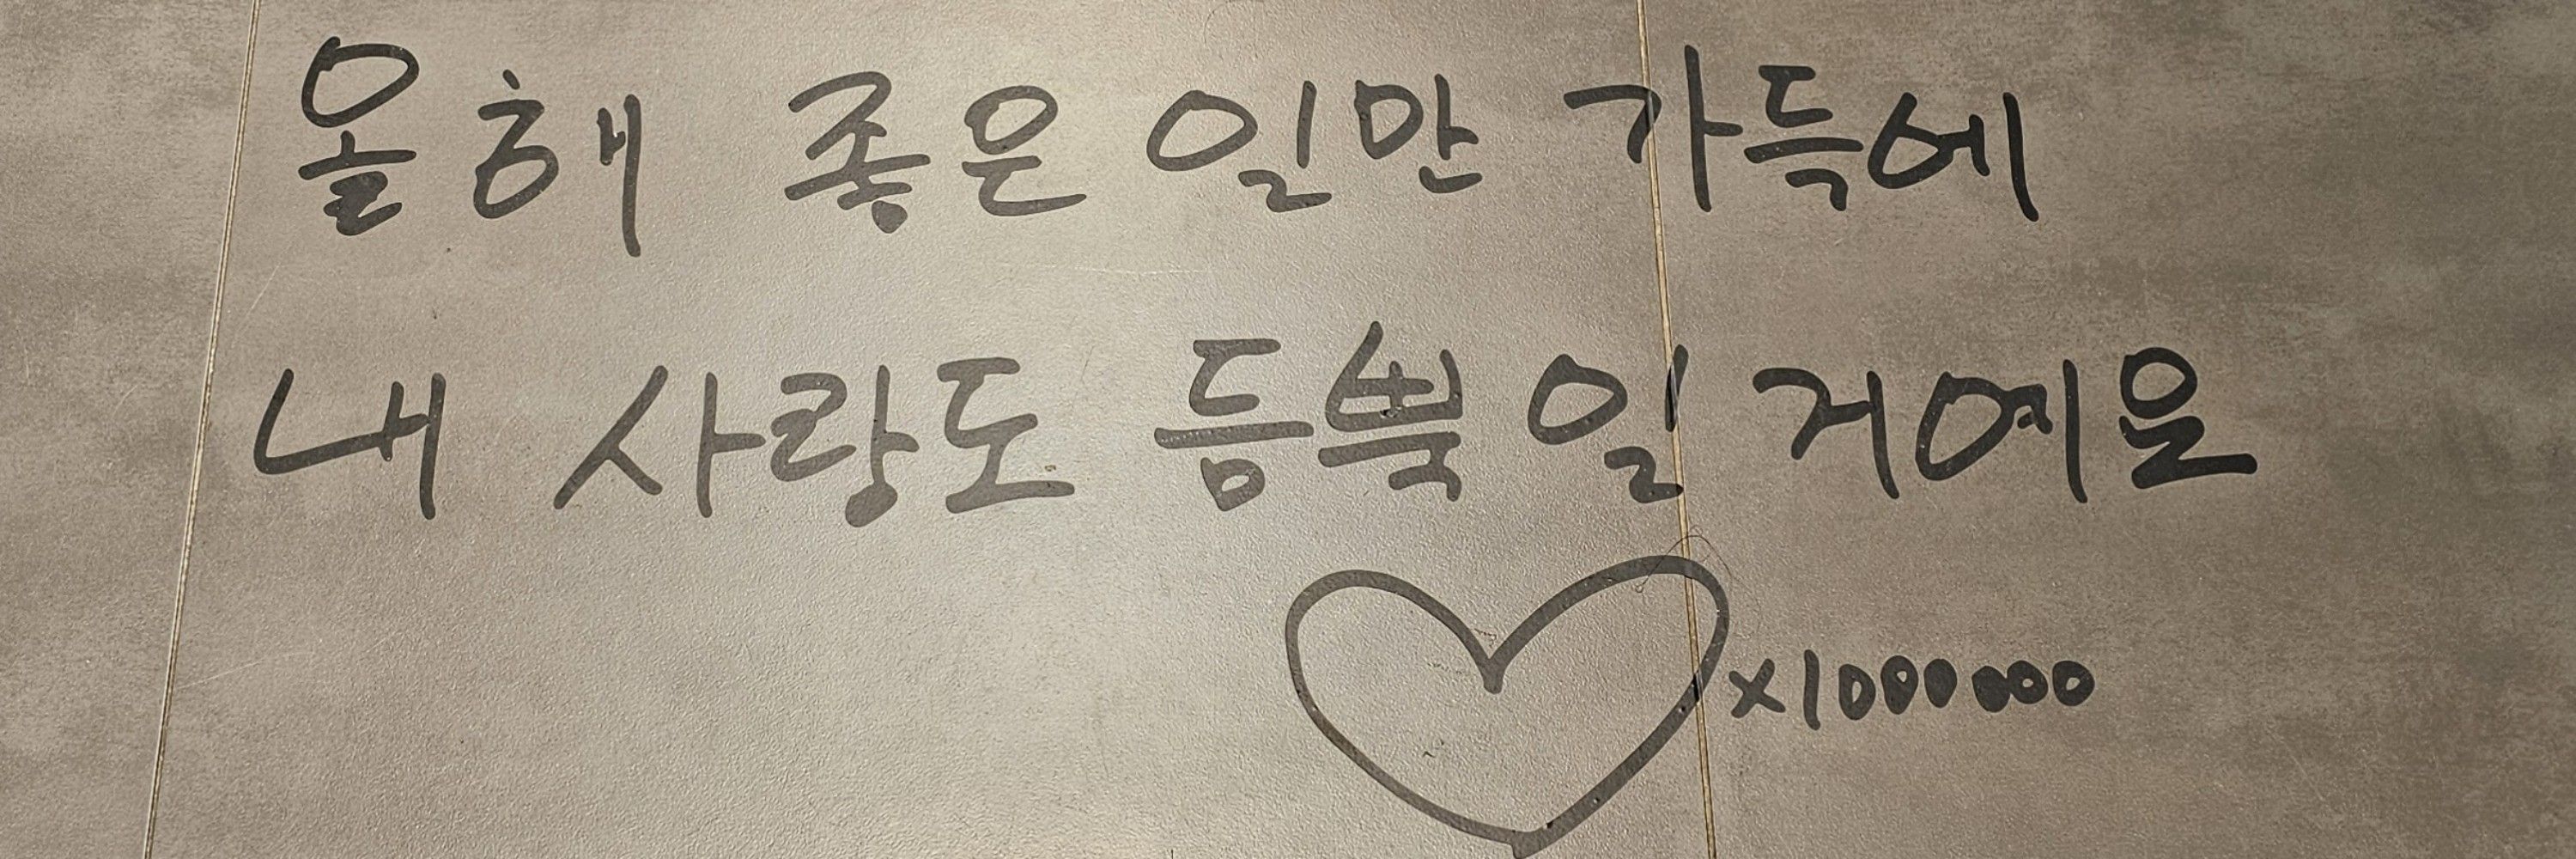 올해 좋은 일만 가득에
내 사랑도 듬뿍일 거예요
♡×1000000